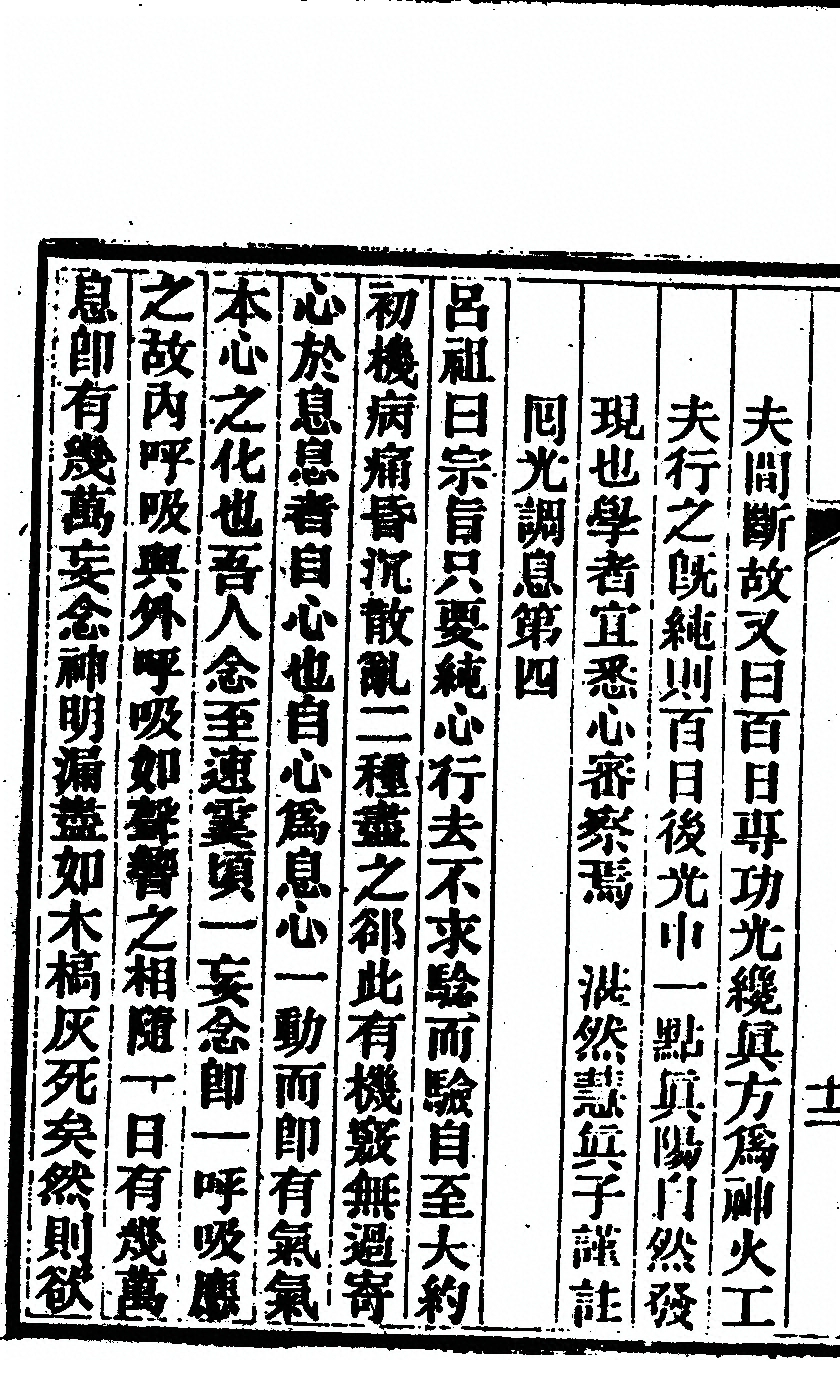 夫間斷故又曰百日專功光纔眞方爲神火工
夫行之旣純則百日後光中一點眞陽自然發
現也學者宜悉心審察焉　湛然慧眞子謹註
囘光調息第四
呂祖曰宗旨只要純心行去不求驗而驗自至大約
初機病痛昏沉散亂二種盡之郤此有機竅無過寄
心於息息者自心也自心爲息心一動而卽有氣氣
本心之化也吾人念至速霎頃一妄念卽一呼吸應
之故內呼吸與外呼吸如聲響之相隨一日有幾萬
息卽有幾萬妄念神明漏盡如木槁灰死矣然則欲
十二